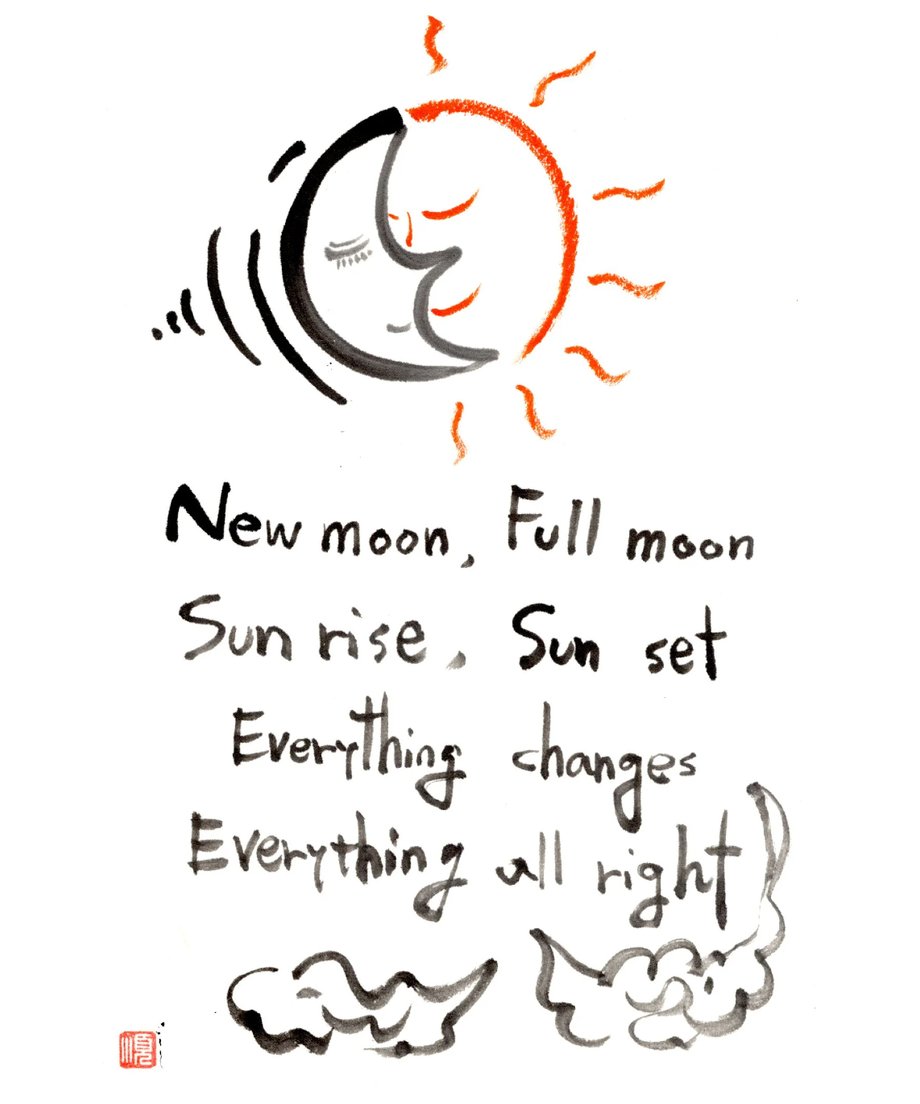 New moon, Full moon
Sun rise, Sun set
Everything changes
Everything all right
順